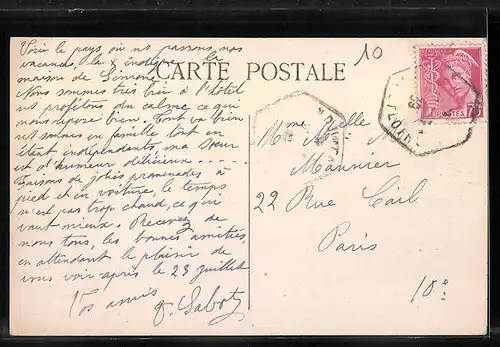 Voici le pays où ns passons nos
vacances, la x indique la
maison de Simone
CARTE POSTALE
Nous sommes très bien à l'hôtel
et profitons du calme ce qui
nous repose bien. Tout va bien
et sommes en famille tout en
étant indépendants, ma sœur
est d'humeur délicieuse.....
Faisons de jolies promenades à
pied et en voiture, le temps
n'est pas trop chaud, ce qui
vaut mieux. Recevez de
nous tous, les bonnes amitiés,
en attendant le plaisir de
vous voir après le 23 juillet
Vos amis
G. Sabot
10
POSTES
Mme Melle
Maunier
22 Rue Cail
Paris
10e